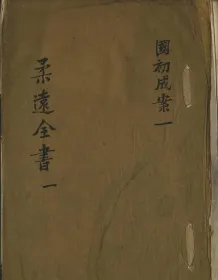 國初成案一
柔遠全書一